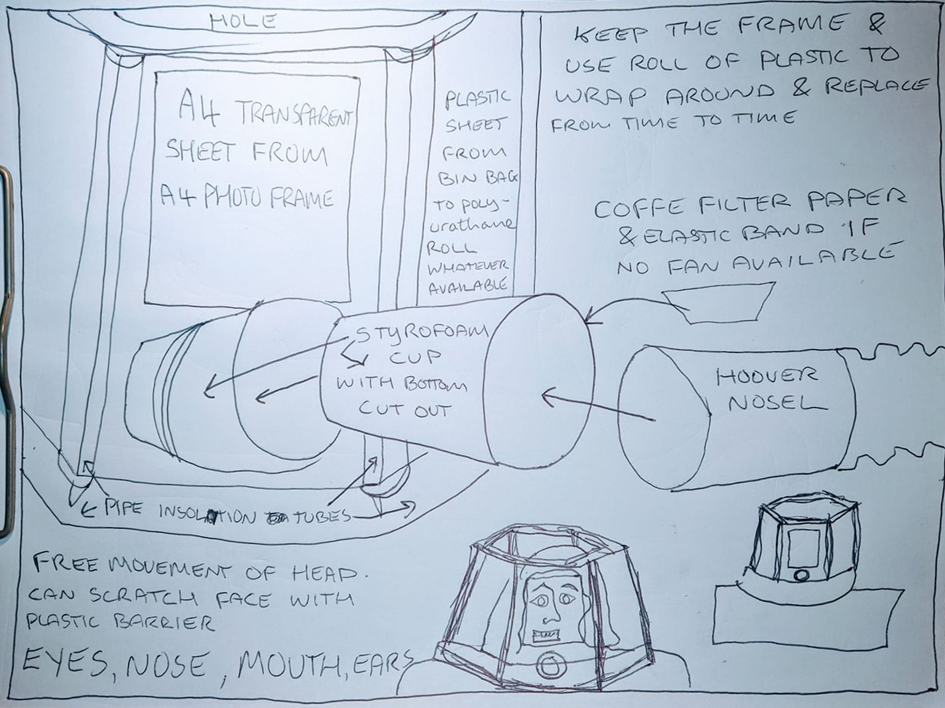 HOLE
A4 TRANSPARENT
SHEET FROM
A4 PHOTO FRAME
PLASTIC
SHEET
FROM
BIN BAG
TO POLY-
urathane
ROLL
WHATEVER
AVAILABLE
KEEP THE FRAME &
USE ROLL OF PLASTIC TO
WRAP AROUND & REPLACE
FROM TIME TO TIME
COFFE FILTER PAPER
& ELASTIC BAND IF
NO FAN AVAILABLE
STYROFOAM
CUP
WITH BOTTOM
CUT OUT
HOOVER
NOSEL
PIPE INSOLATION TUBES
FREE MOVEMENT OF HEAD.
CAN SCRATCH FACE WITH
PLASTIC BARRIER
EYES, NOSE, MOUTH, EARS